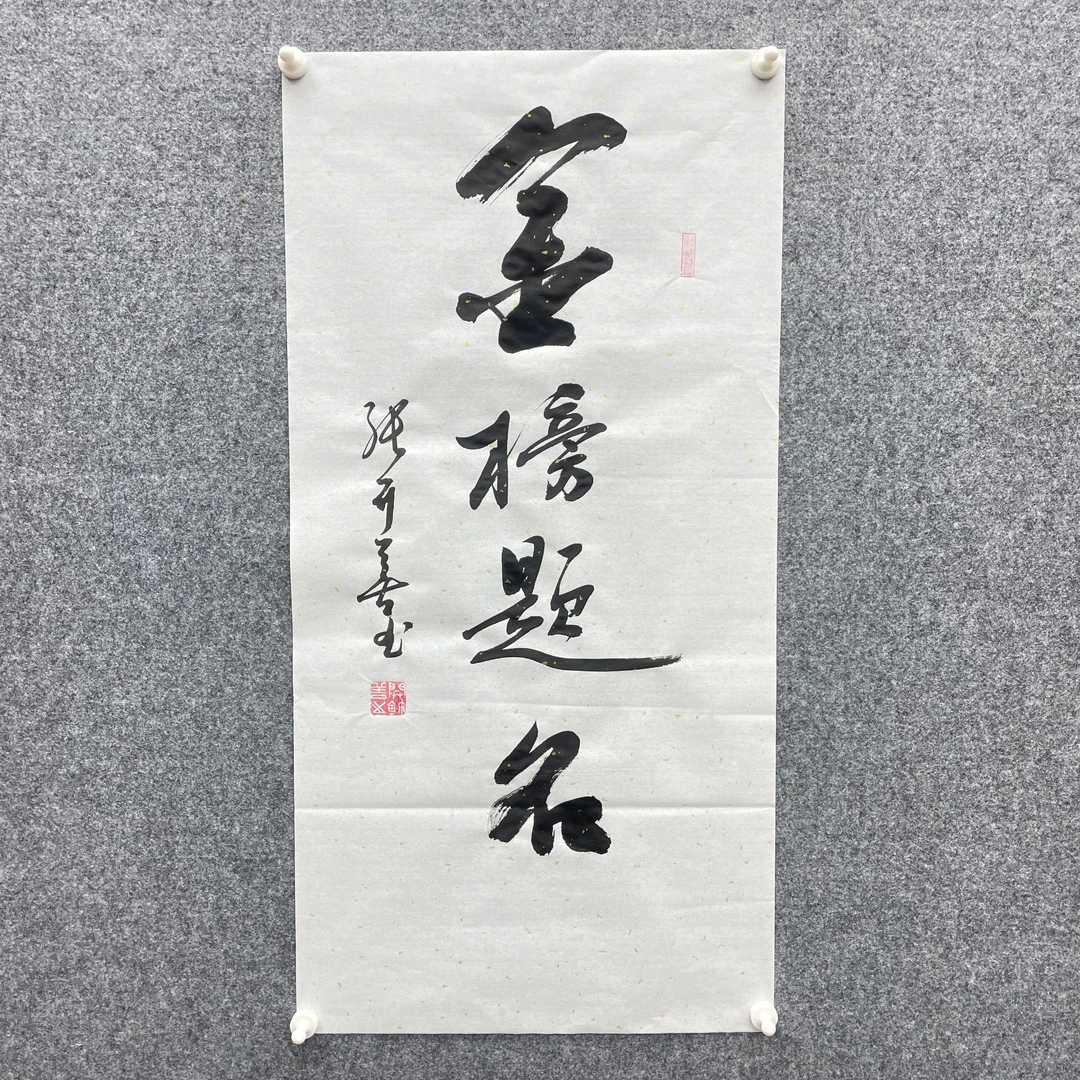 金榜题名
张开善书